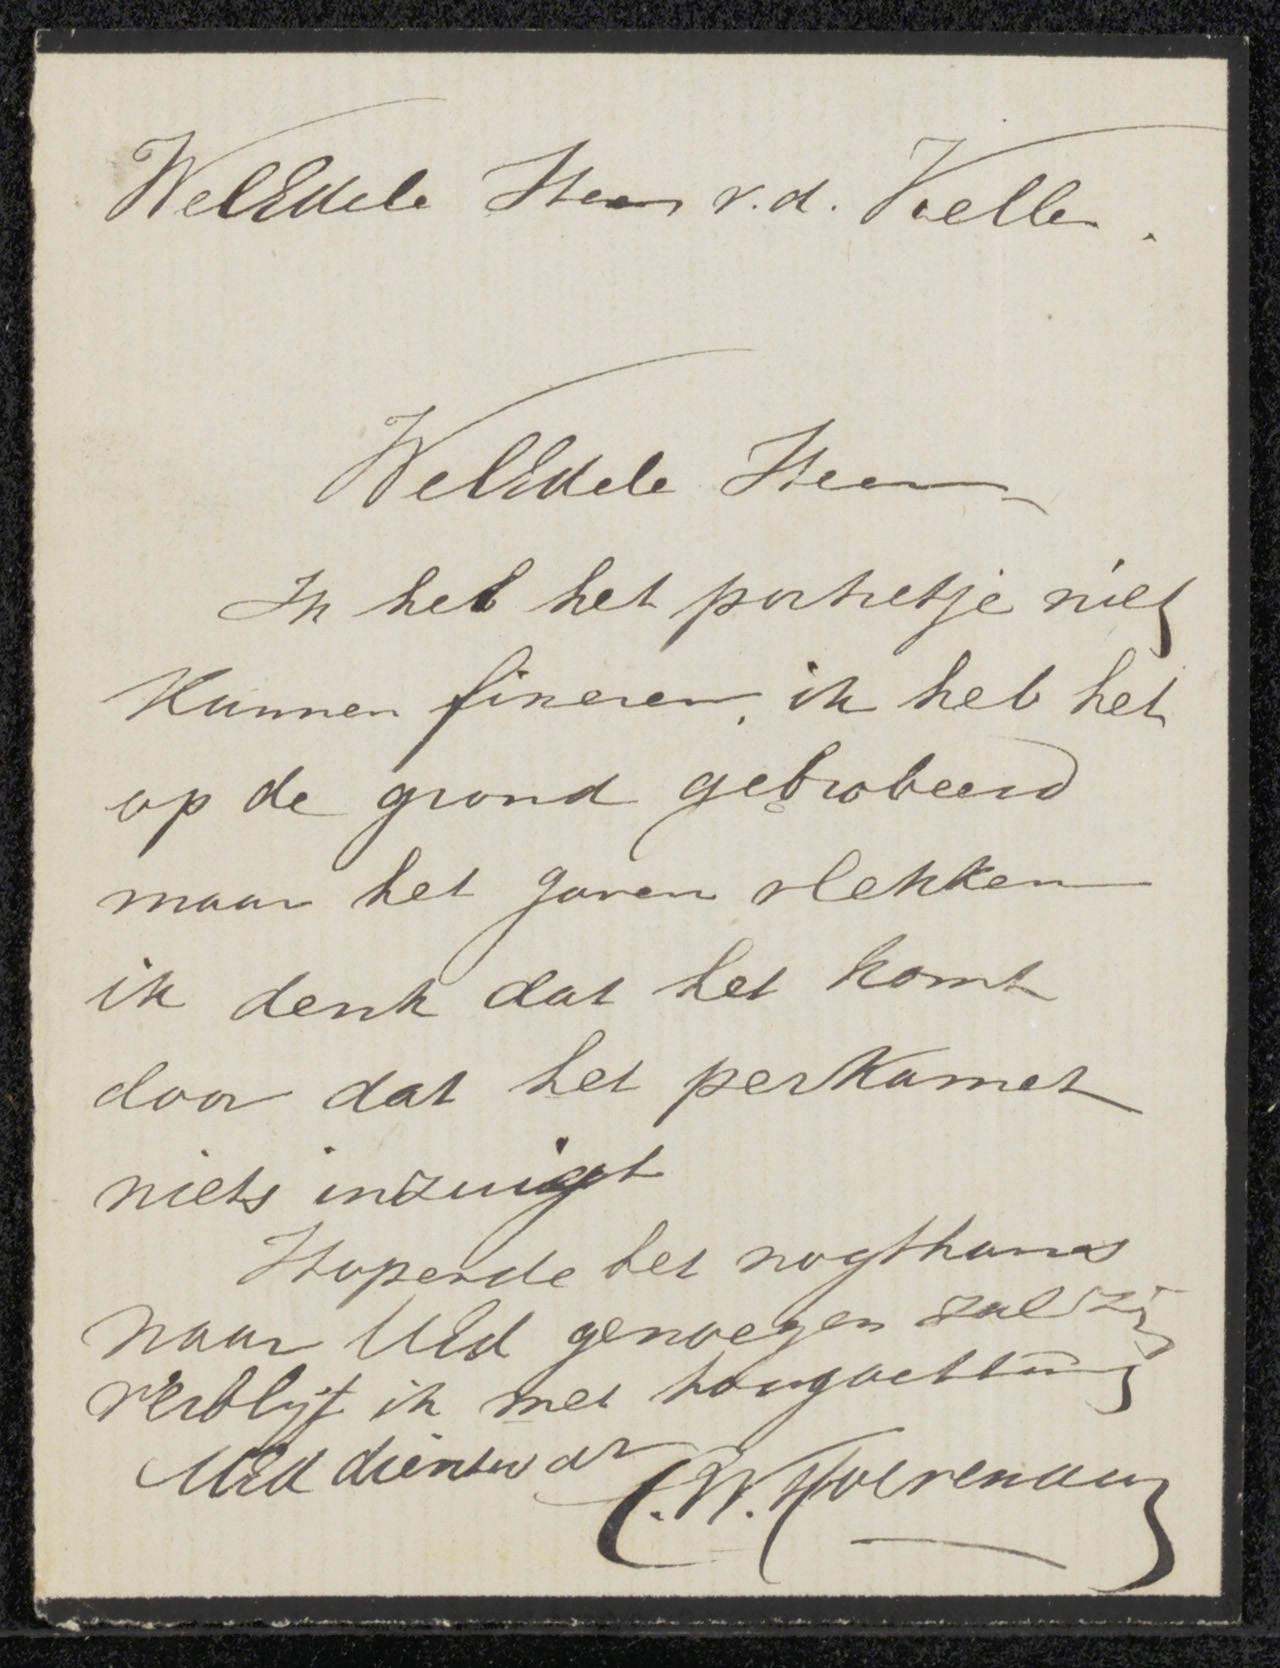 WelEdele Heer v.d. Kellen.
WelEdele Heer
Ik heb het portretje niet
kunnen fixeren, ik heb het
op de grond geprobeerd
maar het gaven vlekken
ik denk dat het komt
door dat het perkament
niets inzuigt
Hopende het nogthans
naar UEd genoegen zal zijn
verblijf ik met hoogachting
UEd dienstw dr C. W.